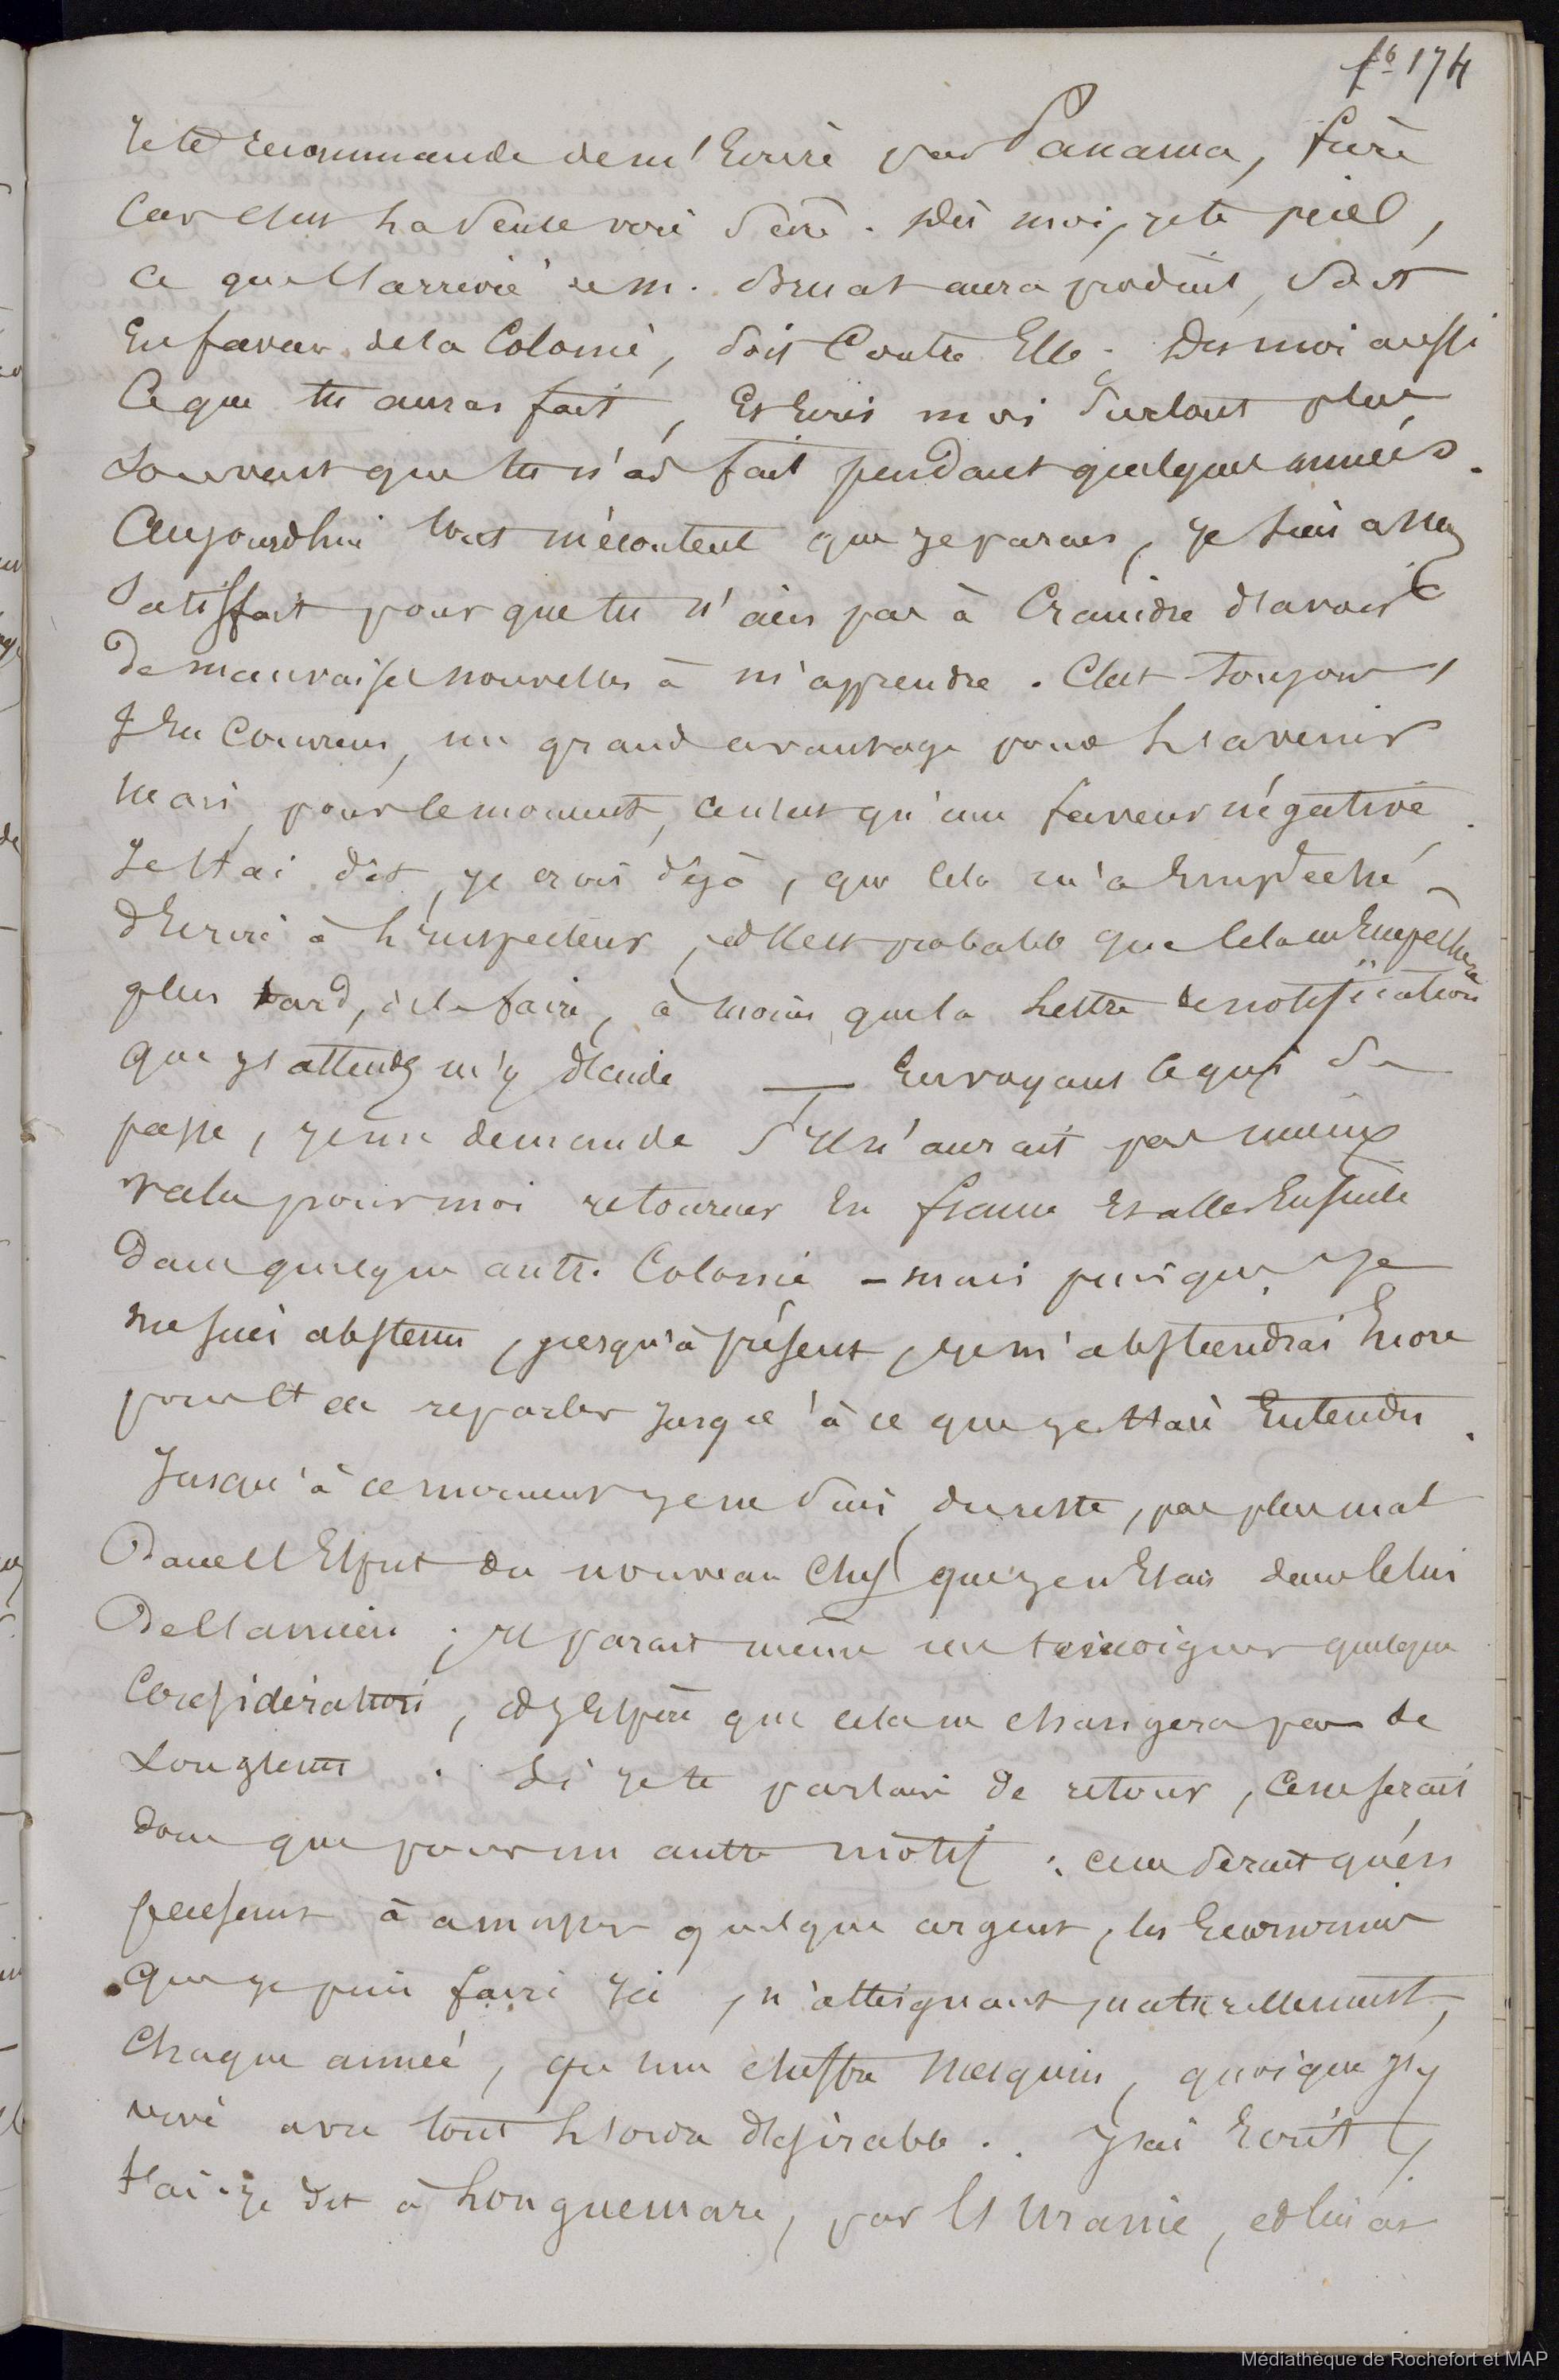 fo 174
Je te recommande de m'Ecrire par Panama, frère
Car c'est la seule voie sûre. Dis moi, je te prie,
Ce que l'arrivée de m. Bruat aura produit, soit
En faveur de la Colonie, soit Contre Elle. Dis moi aussi
Ce que tu auras fait, Et Ecris moi surtout plus
souvent que tu n'as fait pendant quelques années.
Aujourdhui tout mécontent que je parais, je suis assez
satisfait pour que tu n'aies pas à Craindre d'avoir
De mauvaises nouvelles à m'apprendre. C'est toujours,
J'En Conviens, un grand avantage pour l'avenir
Mais, pour le moment, ce n'est qu'une faveur négative.
Je t'ai dit, je crois déjà, que Cela m'a Empêché
d'Ecrire à l'inspecteur, et il est probable que Cela m'Empêchera
plus tard, de le faire, à moins que la Lettre de notification
Que j'attends m'y décide — En voyant Ce qui se
passe, je me demande s'Il n'aurait pas mieux
valu pour moi retourner En france Et aller Ensuite
Dans quelque autre Colonie - mais puisque je
me suis abstenu, jusqu'à présent, je m'abstiendrai Encore
pour t'en reparler jusqu'à ce que je t'aie Entendu.
Jusqu'à ce moment je ne suis, du reste, pas plus mal
Dans l'Esprit du nouveau Chef que j'en Etais dans Celui
De l'ancien; Il parait même me temoigner quelque
Considération, et j'Espère que cela ne changera pas de
Longtems. Si je te parlais de retour, Ce ne serait
donc que pour un autre motif: ce ne serait qu'en
pensant à amasser quelque argent, les Economies
Que je puis faire Ici, n'atteignant, naturellement,
Chaque année, qu'un chiffre Mesquin, quoique j'y
vive avec tout l'ordre désirable.. J'ai Ecrit,
t'ai-je dit à Longuemare, par l'Uranie, et lui ai
Médiathèque de Rochefort et MAP